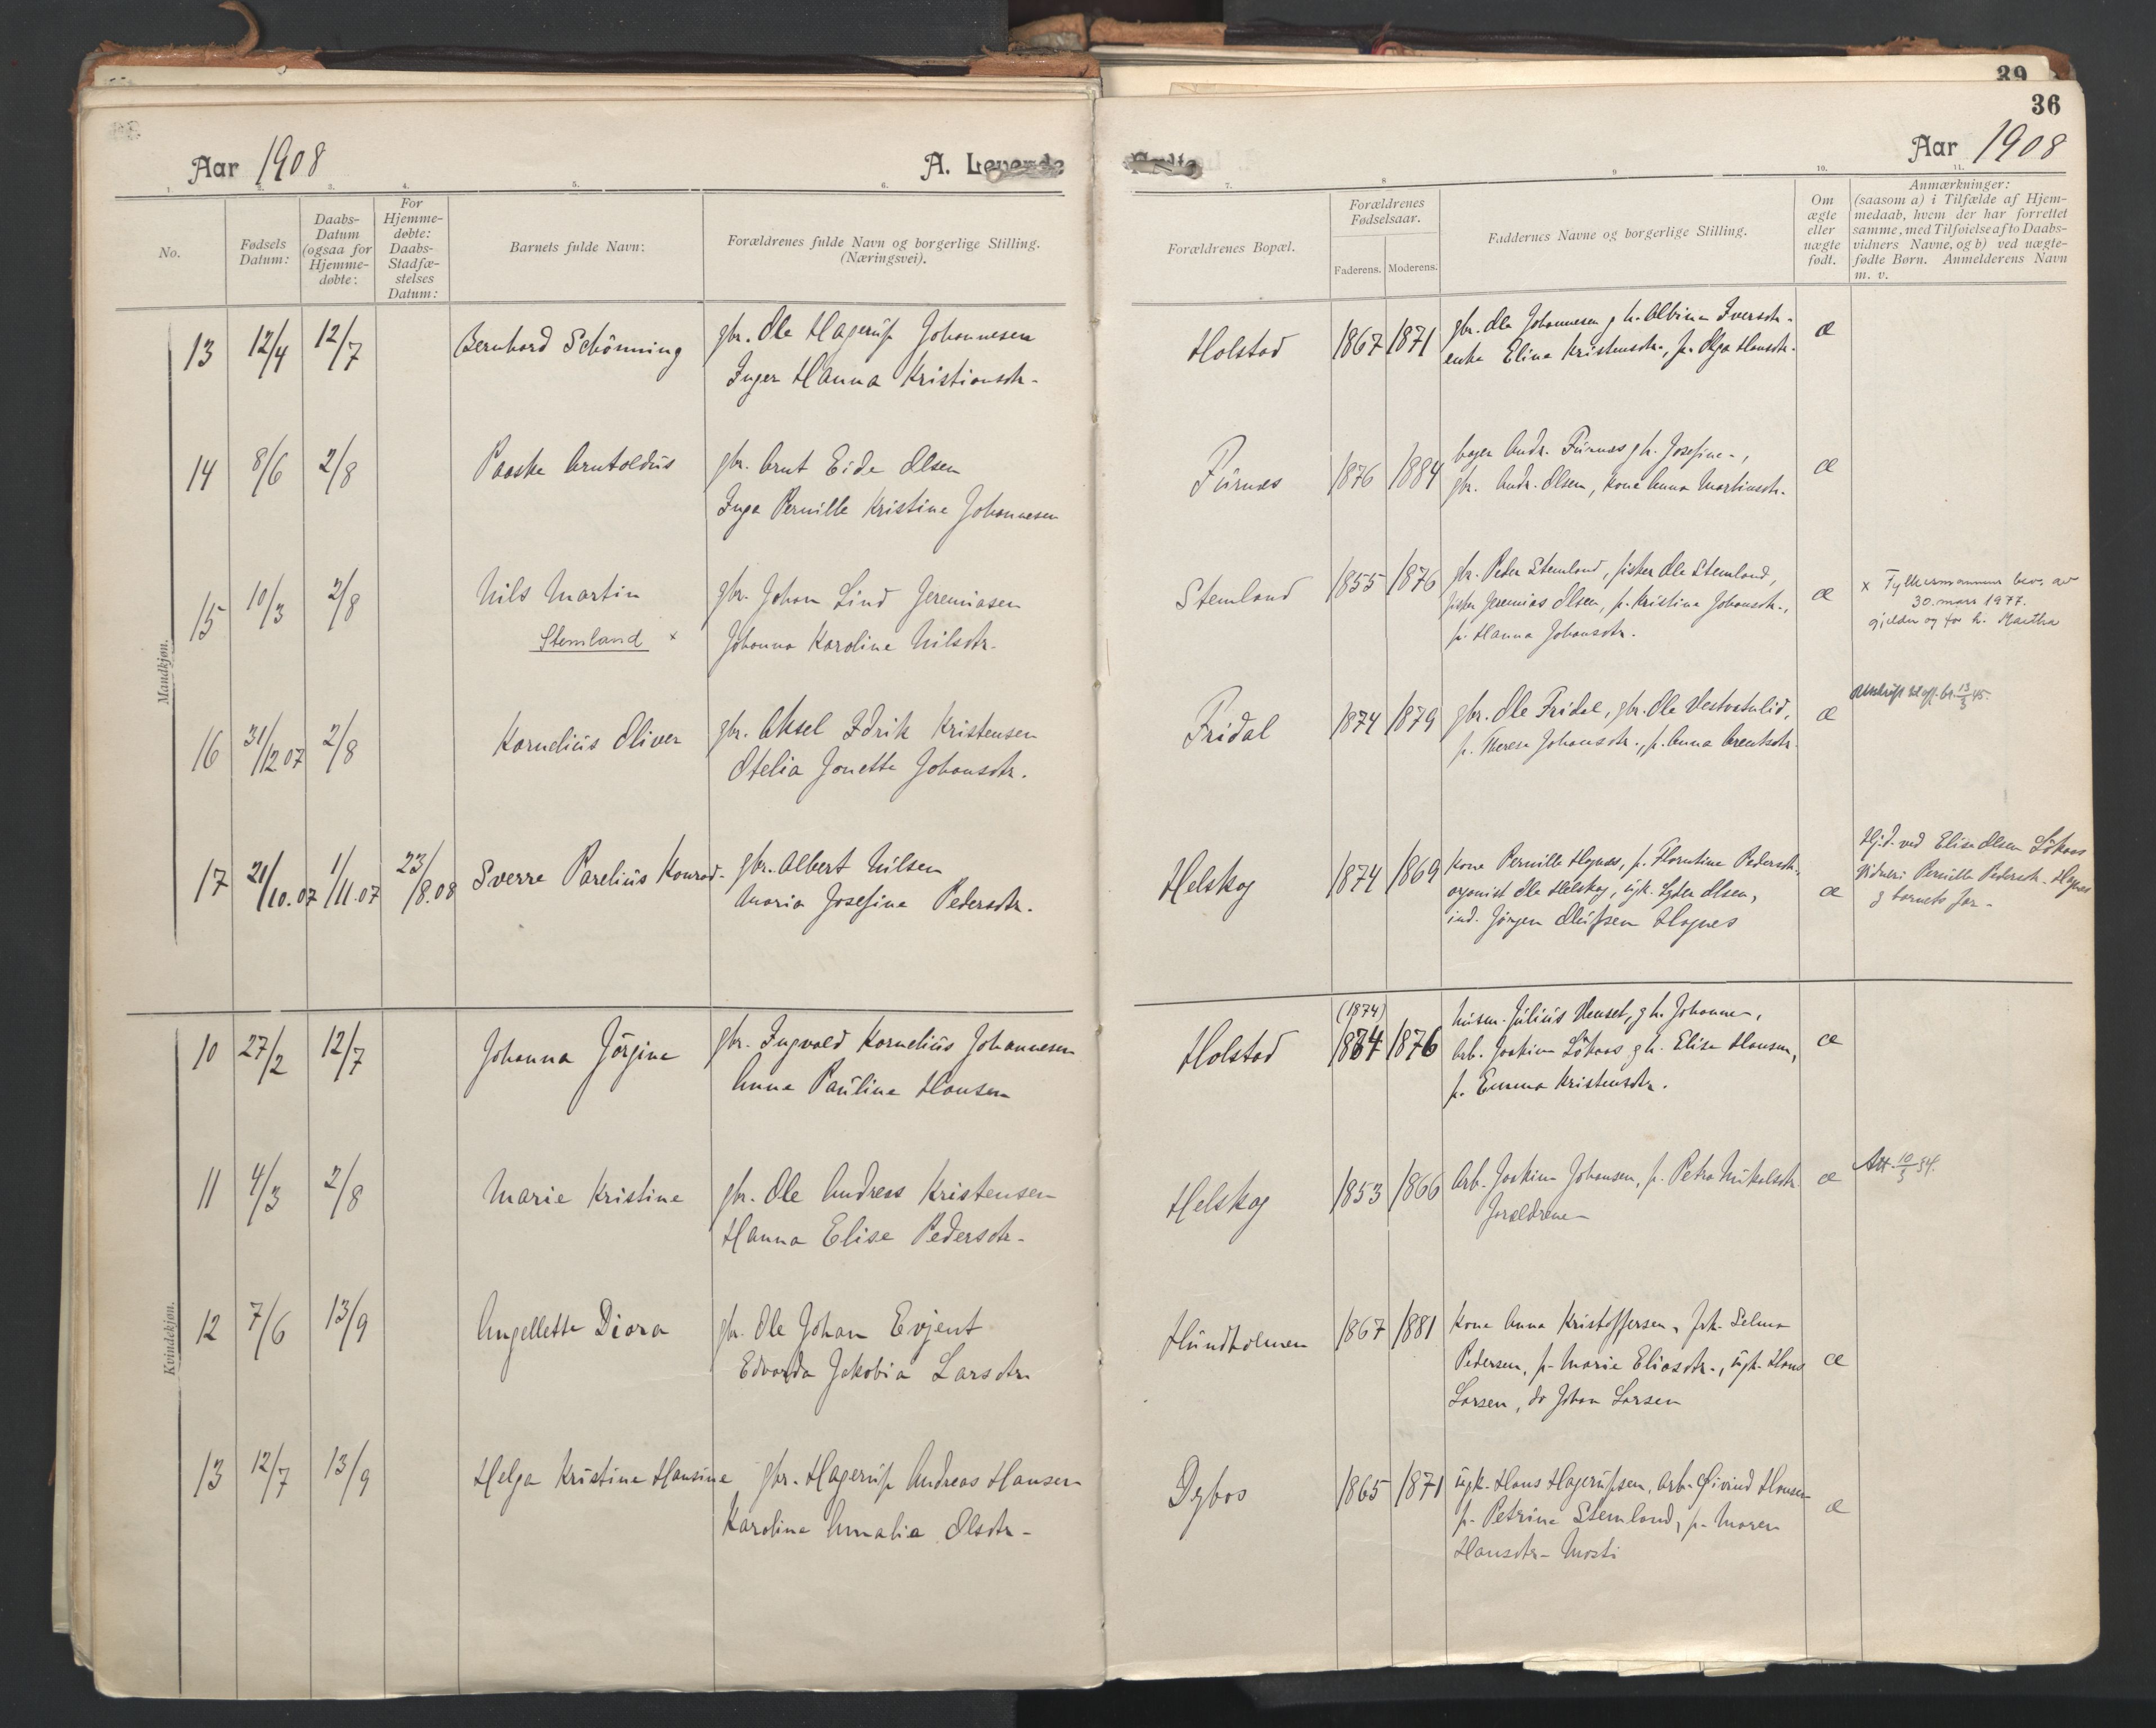 39
36
Aar 1908
A. Levende
Fødte
Aar 1908
1. 2. 3. 4. 5. 6.
7. 8 9 10. 11.
No.
Fødsels Datum:
Daabs-Datum (ogsaa for Hjemme-døbte:
For Hjemme-døbte: Daabs-Stadfæ-stelses Datum:
Barnets fulde Navn:
Forældrenes fulde Navn og borgerlige Stilling.
(Næringsvei).
Forældrenes Bopæl.
Forældrenes Fødselsaar.
Faderens. Moderens.
Faddernes Navne og borgerlige Stilling.
Om ægte eller uægte født.
Anmærkninger:
(saasom a) i Tilfælde af Hjem-
medaab, hvem der har forrettet
samme, med Tilføielse af to Daabs-
vidners Navne, og b) ved uægte-
fødte Børn. Anmelderens Navn
m. v.
Mandkjøn.
13 12/4 12/7 Bernhard Schönning gbr. Ole Hagerup Johannesen
Inger Hanna Kristiansdtr.
Holstad 1867 1871 gbr. Ole Johannesen g h. Albina Iversdtr.
enke Elina Kristensdtr., p. Olga Hansdtr. æ
14 8/6 2/8 Paaske Arntoldus gbr. Arnt Eide Olsen
Inga Pernille Kristine Johannesen
Furnes 1876 1884 Andr. Furnes g h. Josefine,
gbr. Andr. Olsen, kone Anna Martinsdtr. æ
15 10/3 2/8 Nils Martin gbr. Johan Lind Jeremiasen
Stemland x Johanna Karoline Nilsdtr.
Stemland 1855 1876 gbr. Peder Stemland, fisker Ole Stemland,
fisker Jeremias Olsen, p. Kristina Johansdtr.,
p. Hanna Johansdtr. æ
x Fylkesmannens bev. av
30. mars 1977.
gjelder og for h. Martha
16 31/12 07 2/8 Kornelius Oliver gbr. Aksel Edrik Kristensen
Otelia Jonette Johansdtr.
Fridal 1874 1879 gbr. Ole Fridal, gbr. Ole Vestvatnlid,
p. Therese Johansdtr., p. Anna Arentsdtr. æ
17 21/10.07 1/11.07 23/8.08 Sverre Parelius Konrad gbr. Albert Nilsen
Maria Josefine Pedersdtr.
Helskog 1874 1869 Kone Pernille Hognes, p. Florentine Pedersdtr.,
organist Ole Helskog, ugk. Peder Olsen,
ind. Jörgen Olufsen Hognes æ
Hj.d. ved Elise Olsen Lökaas
Vidner: Pernille Pedersdtr. Hognes
g barnets far
Kvindekjøn.
10 27/2 12/7 Johanna Jörgine gbr. Ingvald Kornelius Johannesen
Anna Pauline Hansen
Holstad (1874)
1874 1876 husm. Julius Venset, g h. Johanna,
Arb. Joakim Lökaas g h. Elisa Hansen,
p. Emma Kristensdtr. æ
11 4/3 2/8 Marie Kristine gbr. Ole Andreas Kristensen
Hanna Elise Pedersdtr.
Helskog 1853 1866 Arb. Joakim Johansen, p. Petra Mikalsdtr.
Forældrene æ
Att. 10/3 54.
12 7/6 13/9 Angellette Diora gbr. Ole Johan Evjent
Edvarda Jakobia Larsdtr.
Hundholmen 1867 1881 Kone Anna Kristoffersen, frk. Selma
Pedersen, p. Marie Eliasdtr., ugk. Hans
Larsen, do Johan Larsen æ
13 12/7 13/9 Helga Kristine Hansine gbr. Hagerup Andreas Hansen
Karoline Amalie Olsdtr.
Dybos 1865 1871 ugk. Hans Hagerupsen, Arb. Øivind Hansen
p. Petrine Stemland, p. Maren
Hansdtr. Mosti æ